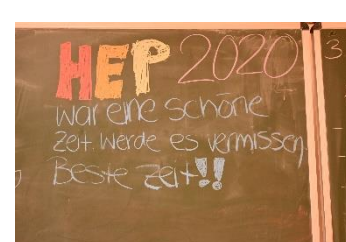 HEP 2020 3
war eine schöne
Zeit. Werde es vermissen
Beste Zeit!!